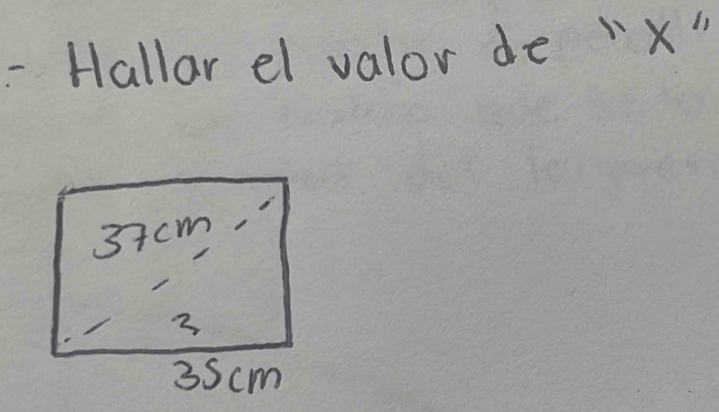 .- Hallar el valor de "X"
37cm
2
35cm